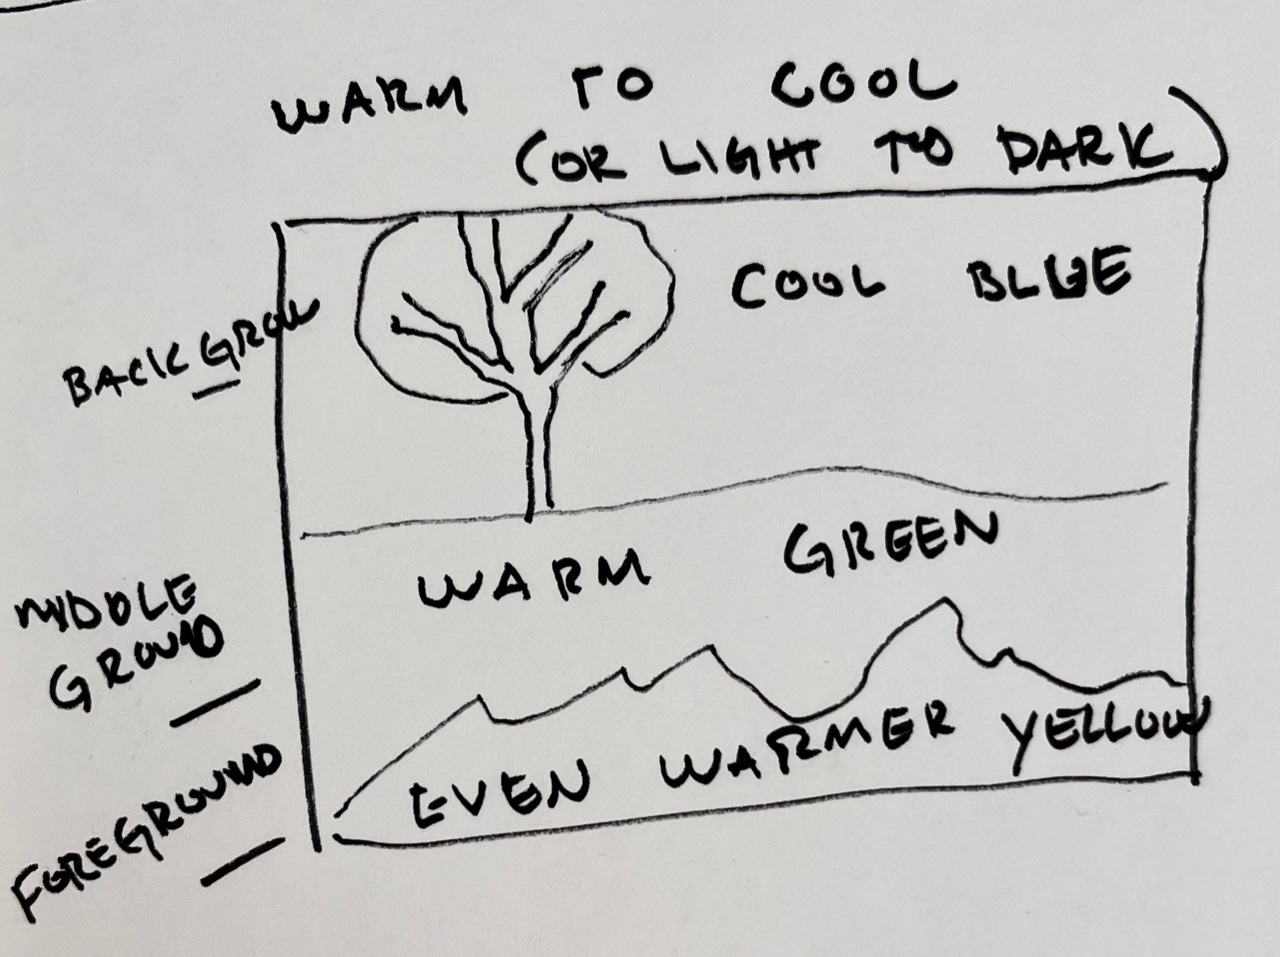 WARM TO COOL
(OR LIGHT TO DARK)
COOL BLUE
BACKGROU
WARM GREEN
MIDDLE
GROUND
EVEN WARMER YELLOW
FOREGROUND